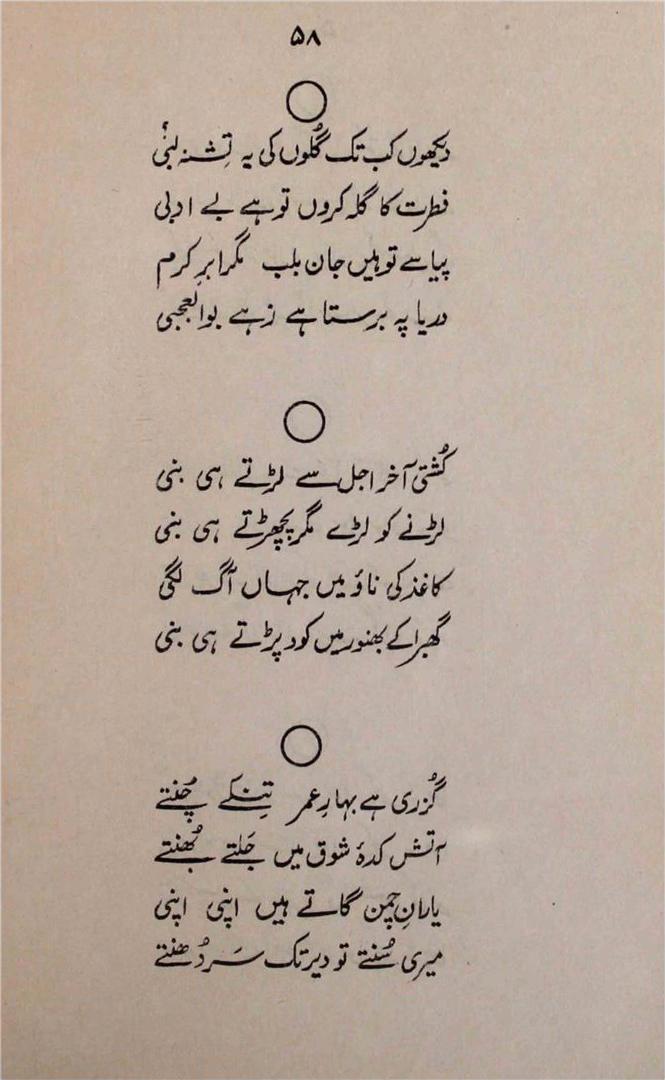 ۵۸
دیکھوں کب تک گُلوں کی یہ تِشنہ لبی؟
فطرت کا گلہ کروں تو ہے بے ادبی
پیاسے تو ہیں جان بلب مگر ابرِ کرم
دریا پہ برستا ہے زہے بوالعجبی
کُشتی آخر اجل سے لڑتے ہی بنی
لڑنے کو لڑے مگر بچھڑتے ہی بنی
کاغذ کی ناؤ میں جہاں آگ لگی
گھبرا کے بھنور میں کود پڑتے ہی بنی
گُزری ہے بہارِ عمر تِنکے چُنتے
آتش کدۂ شوق میں جَلتے بُھنتے
یارانِ چمن گاتے ہیں اپنی اپنی
میری سُنتے تو دیر تک سَر دُھنتے